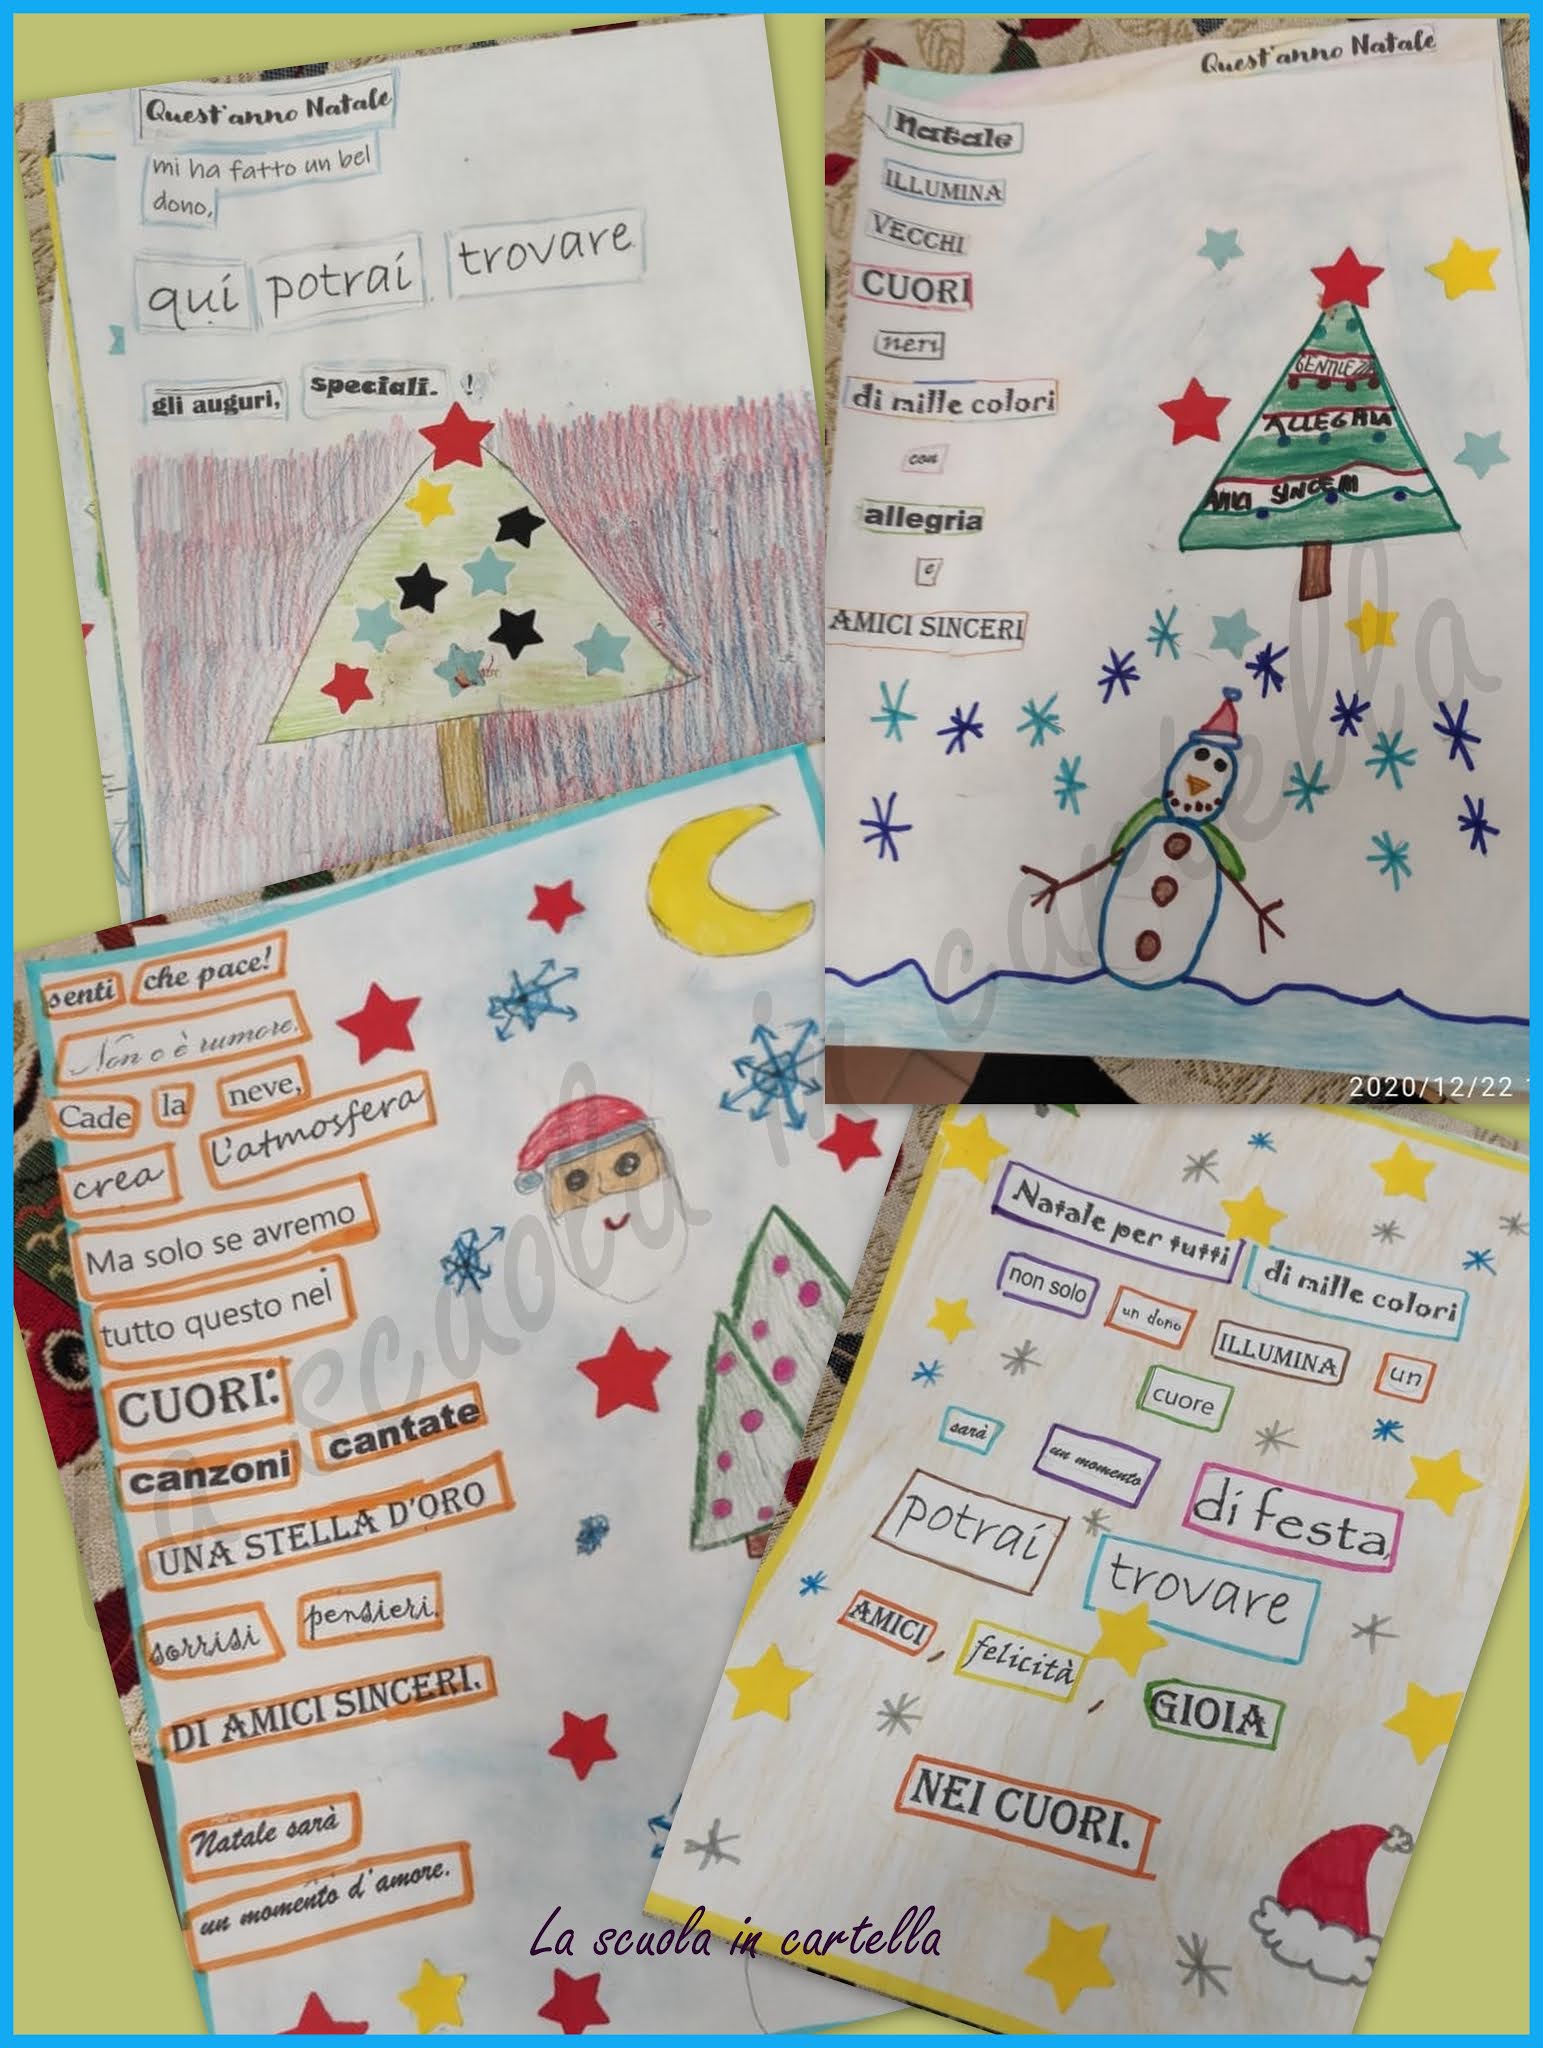 Quest'anno Natale
mi ha fatto un bel
dono,
qui potrai trovare
gli auguri, speciali. !
Quest'anno Natale
Natale
ILLUMINA
VECCHI
CUORI
neri
di mille colori
con
allegria
e
AMICI SINCERI
GENTILEZZA
ALLEGRIA
AMICI SINCERI
2020/12/22
senti che pace!
Non c'è rumore.
Cade la neve,
crea l'atmosfera
Ma solo se avremo
tutto questo nei
CUORI:
canzoni cantate
UNA STELLA D'ORO
sorrisi pensieri,
DI AMICI SINCERI.
Natale sarà
un momento d'amore.
Natale per tutti di mille colori
non solo un dono ILLUMINA un
cuore
sarà un momento di festa,
potrai trovare
AMICI, felicità, GIOIA
NEI CUORI.
La scuola in cartella
La scuola in cartella